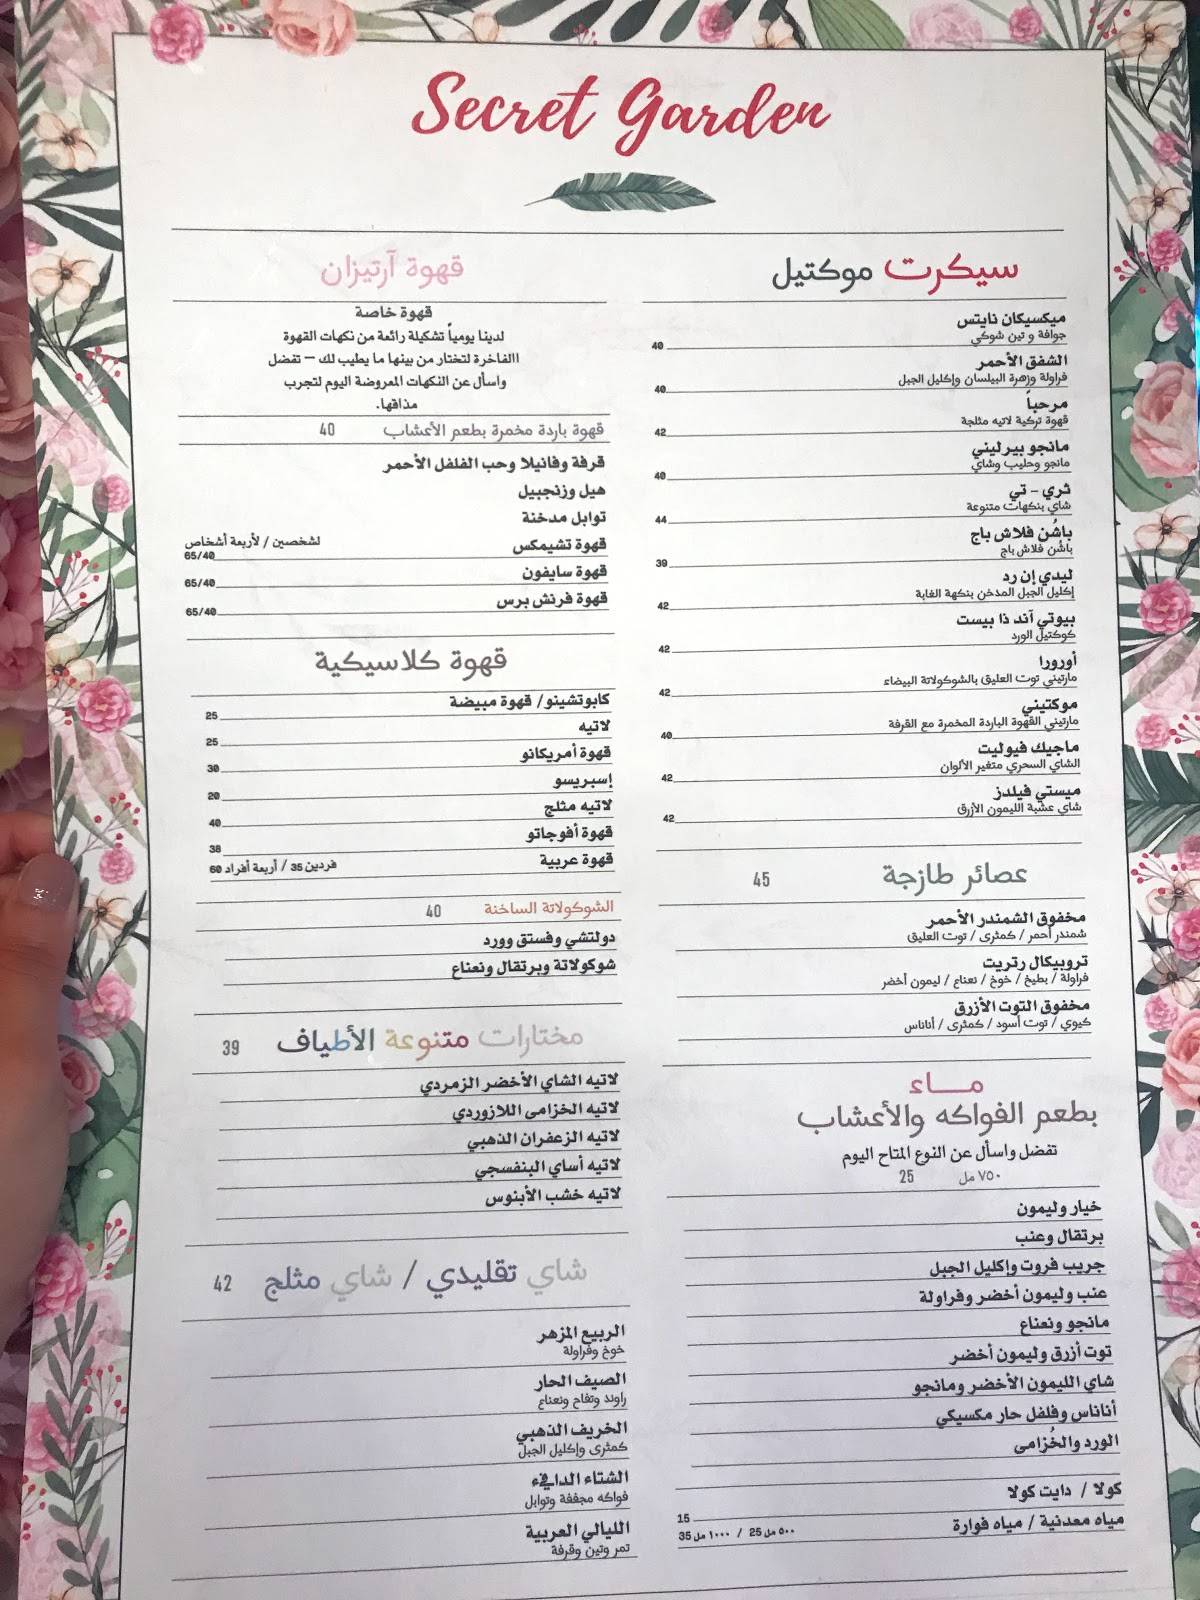 Secret Garden
سيكرت موكتيل
ميكسيكان نايتس
جوافة و تين شوكي
40
الشفق الأحمر
فراولة وزهرة البيلسان وإكليل الجبل
40
مرحباً
قهوة تركية لاتيه مثلجة
42
مانجو بيرليني
مانجو وحليب وشاي
40
ثري - تي
شاي بنكهات متنوعة
44
باشُن فلاش باج
باشُن فلاش باج
39
ليدي إن رد
إكليل الجبل المدخن بنكهة الغابة
42
بيوتي آند ذا بيست
كوكتيل الورد
42
أورورا
مارتيني توت العليق بالشوكولاتة البيضاء
42
موكتيني
مارتيني القهوة الباردة المخمرة مع القرفة
40
ماجيك فيوليت
الشاي السحري متغير الألوان
42
ميستي فيلدز
شاي عشبة الليمون الأزرق
42
عصائر طازجة 45
مخفوق الشمندر الأحمر
شمندر أحمر / كمثرى / توت العليق
تروبيكال رتريت
فراولة / بطيخ / خوخ / نعناع / ليمون أخضر
مخفوق التوت الأزرق
كيوي / توت أسود / كمثرى / أناناس
مـــاء
بطعم الفواكه والأعشاب
تفضل واسأل عن النوع المتاح اليوم
٧٥٠ مل 25
خيار وليمون
برتقال وعنب
جريب فروت وإكليل الجبل
عنب وليمون أخضر وفراولة
مانجو ونعناع
توت أزرق وليمون أخضر
شاي الليمون الأخضر ومانجو
أناناس وفلفل حار مكسيكي
الورد والخُزامى
كولا / دايت كولا
15
مياه معدنية / مياه فوارة
٥٠٠ مل 25 / ١٠٠٠ مل 35
قهوة آرتيزان
قهوة خاصة
لدينا يومياً تشكيلة رائعة من نكهات القهوة
االفاخرة لتختار من بينها ما يطيب لك – تفضل
واسأل عن النكهات المعروضة اليوم لتجرب
مذاقها.
قهوة باردة مخمرة بطعم الأعشاب 40
قرفة وفانيلا وحب الفلفل الأحمر
هيل وزنجبيل
توابل مدخنة
قهوة تشيمكس لشخصين / لأربعة أشخاص
65/40
قهوة سايفون
65/40
قهوة فرنش برس
65/40
قهوة كلاسيكية
كابوتشينو/ قهوة مبيضة
25
لاتيه
25
قهوة أمريكانو
30
إسبريسو
20
لاتيه مثلج
40
قهوة أفوجاتو
38
قهوة عربية فردين 35 / أربعة أفراد 60
الشوكولاتة الساخنة 40
دولتشي وفستق وورد
شوكولاتة وبرتقال ونعناع
مختارات متنوعة الأطياف 39
لاتيه الشاي الأخضر الزمردي
لاتيه الخزامى اللازوردي
لاتيه الزعفران الذهبي
لاتيه أساي البنفسجي
لاتيه خشب الأبنوس
شاي تقليدي / شاي مثلج 42
الربيع المزهر
خوخ وفراولة
الصيف الحار
راوند وتفاح ونعناع
الخريف الذهبي
كمثرى وإكليل الجبل
الشتاء الدافيء
فواكه مجففة وتوابل
الليالي العربية
تمر وتين وقرفة